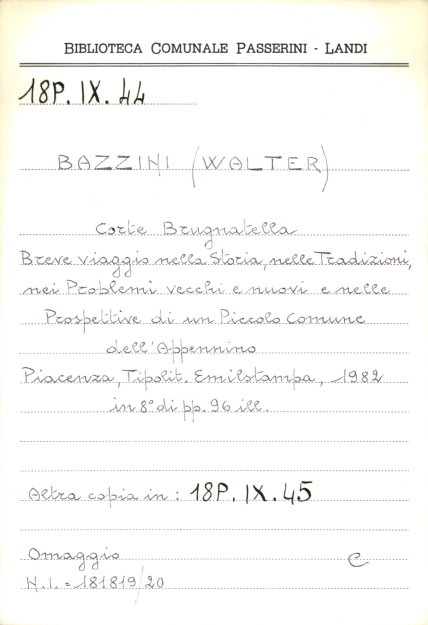 BIBLIOTECA COMUNALE PASSERINI - LANDI
18P. IX. 44
BAZZINI (WALTER)
Corte Brugnatella
Breve viaggio nella Storia, nelle Tradizioni,
nei Problemi vecchi e nuovi e nelle
Prospettive di un Piccolo Comune
dell'Appennino
Piacenza, Tipolit. Emilstampa, 1982
in 8° di pp. 96 ill.
Altra copia in: 18P. IX. 45
Omaggio e
N.I. = 181819/20